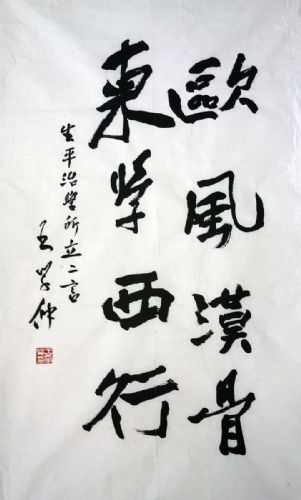 歐風漢骨
東學西行
生平治學所立二言
王學仲